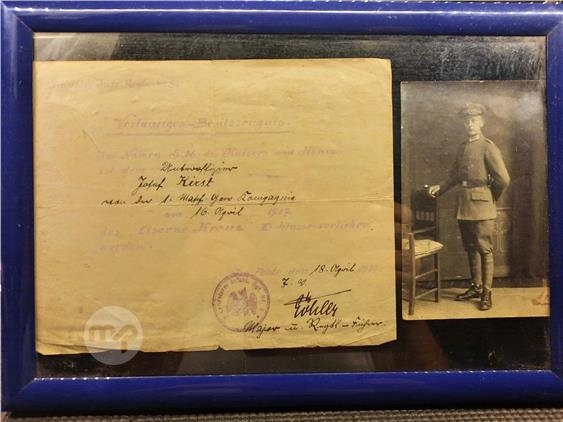 Vorläufiges Besitzzeugnis.
Im Namen S.M. des Kaisers und Königs
ist dem Unteroffizier
Josef Kiest
von der 1. Masch. Gew. Kompagnie
am 16. April 1917
das Eiserne Kreuz II. Klasse verliehen
worden.
den 18. April
Major u. Regts.-Führer.